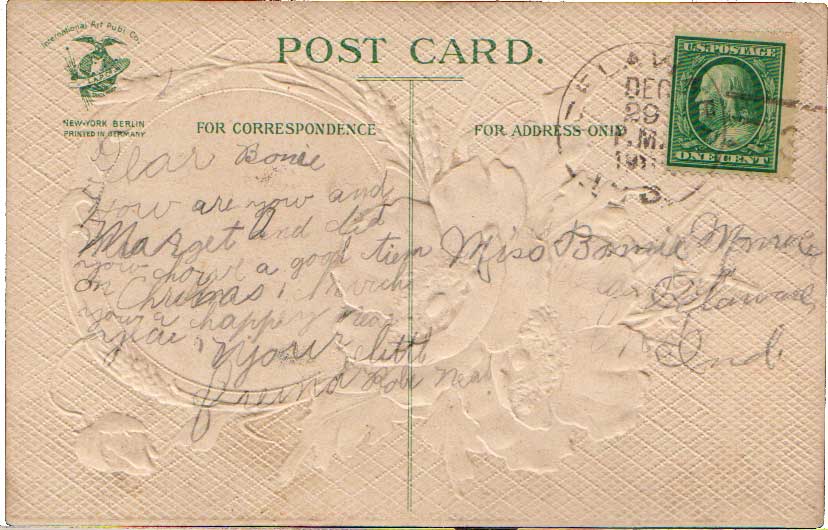 International Art Publ. Co.
NEW-YORK BERLIN
PRINTED IN GERMANY
POST CARD.
FOR CORRESPONDENCE
FOR ADDRESS ONLY
U.S. POSTAGE
ONE CENT
DEC
29
Dear Bonie
How are you and
Marget and did
you have a good tiem
On Chrismas, I
you a happy
your little
freind
Miss Bonnie Monroe
Delaware
Ind